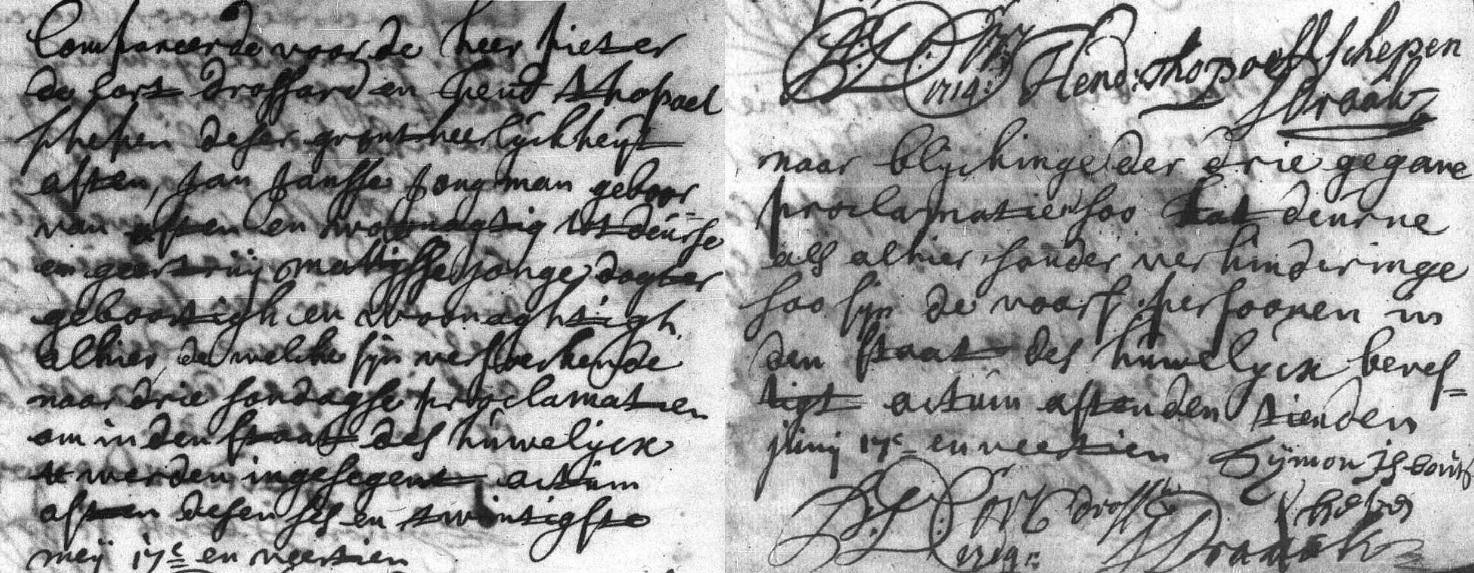 Compareerde voor de heer Pieter
de Cort drossard en Hend: Thopoel
schepen deser gront heerlyckheyt
asten, Jan Janssе Jongman geboor
van asten en woonagtig tot deurse
en geertruij Matijsse jonge dogter
geboortigh en woonaghtigh
alhier, de welcke sijn versoekende
naar drie sondagse proclamatien
om in den staat des huwelijcx
te werden ingesegent actum
asten desen ses en twintighste
meij 17c en veertien
1714: Hend: Thopoell schepen
naar blyckinge der drie gegane
proclamatien soo tat deurne
als alhier sonder verhinderinge
soo sijn de voors. persoonen in
den staat des huwelijcx beves=
tigt actum asten den tienden
junij 17c en veertien Symon Jsbouts
drossrt schepen
1714: